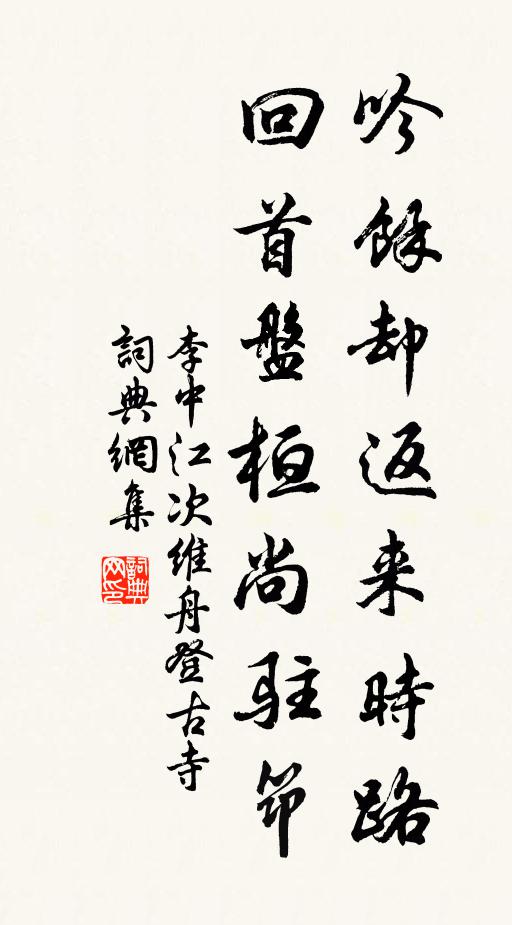 吟餘却返来時路
回首盤桓尚駐筇
李中江次維舟登古寺
詞典網集
詞典网印